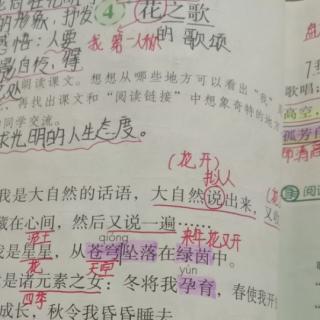 ④ 花之歌
我 第一人称 的 歌颂
感悟：人要
阅读课文。想想从哪些地方可以看出“我”
再找出课文和“阅读链接”中想象奇特的地方
同学交流。
光明的人生态度。
（花开）
拟人
我是大自然的话语，大自然说出来，又
藏在心间，然后又说一遍……
泥土 来年花又开
qióng
我是星星，从苍穹坠落在绿茵中。
花 天空 yùn
是诸元素之女：冬将我孕育，春使我开
四季
成长，秋令我昏昏睡去
7.
歌唱；
高空，
孤芳自
阅读